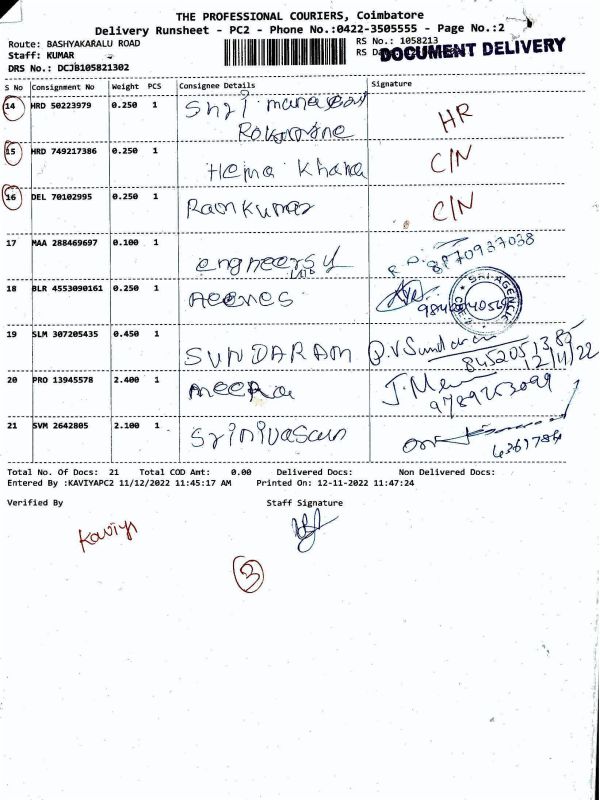 THE PROFESSIONAL COURIERS, Coimbatore
Delivery Runsheet - PC2 - Phone No.:0422-3505555 - Page No.:2
Route: BASHYAKARALU ROAD
RS No.: 1058213
Staff: KUMAR
RS Da
DOCUMENT DELIVERY
DRS No.: DCJB105821302
S No Consignment No Weight PCS Consignee Details Signature
14 HRD 50223979 0.250 1 Shri HR
15 HRD 749217386 0.250 1 Hema Khana C/N
16 DEL 70102995 0.250 1 Ramkumar C/N
17 MAA 288469697 0.100 1 engineers 8870937038
18 BLR 4553090161 0.250 1
19 SLM 307205435 0.450 1 SUNDARAM P.V Sundaram
12/11/22
20 PRO 13945578 2.400 1 meera J. Meera
9789253099
21 SVM 2642805 2.100 1 Srinivasan
Total No. Of Docs: 21 Total COD Amt: 0.00 Delivered Docs: Non Delivered Docs:
Entered By :KAVIYAPC2 11/12/2022 11:45:17 AM Printed On: 12-11-2022 11:47:24
Verified By Staff Signature
Kaviya
3